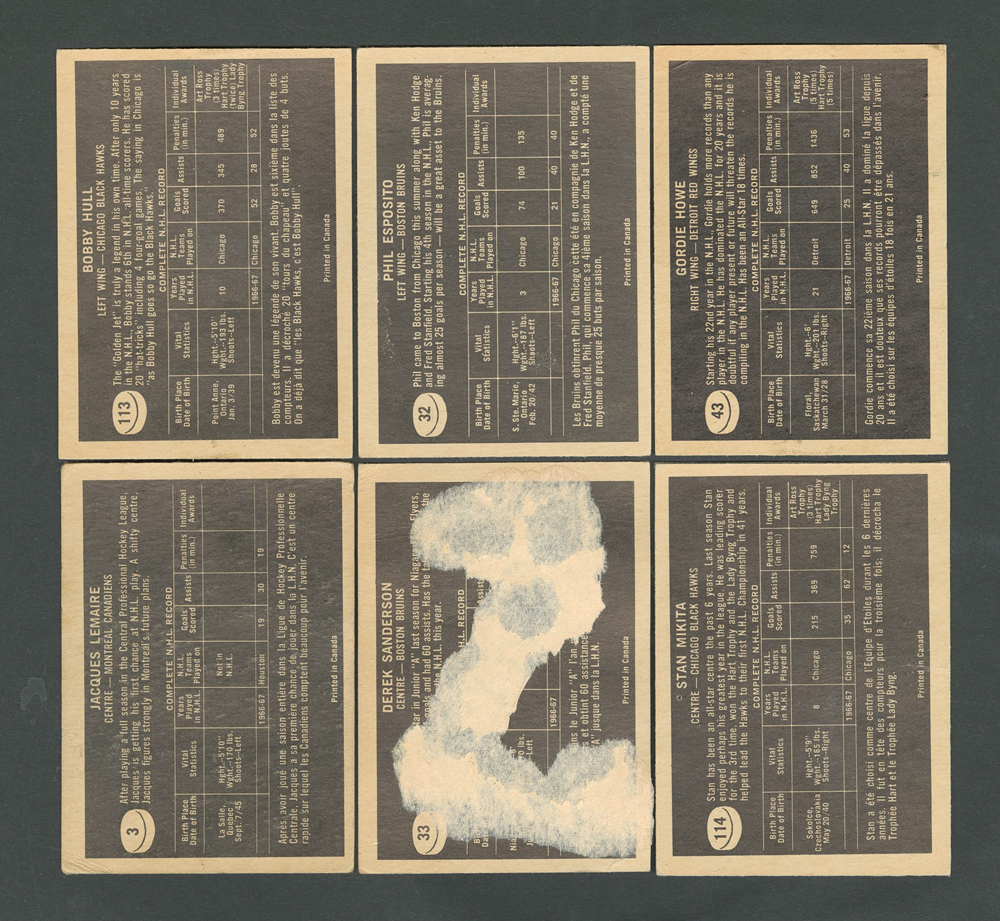 113
BOBBY HULL
LEFT WING — CHICAGO BLACK HAWKS
The "Golden Jet" is truly a legend in his own time. After only 10 years
in the N.H.L. Bobby stands 6th in N.H.L. all-time scorers. He has scored
20 "hat-tricks" including 4 four-goal games. The saying in Chicago is
"as Bobby Hull goes so go the Black Hawks."
COMPLETE N.H.L. RECORD
Birth Place Date of Birth | Vital Statistics | Years Played in N.H.L. | N.H.L. Teams Played on | Goals Scored | Assists | Penalties (in min.) | Individual Awards
Point Anne, Ontario Jan. 3/39 | Hght.-5'10" Wght.-193 lbs. Shoots-Left | 10 | Chicago | 370 | 345 | 489 | Art Ross Trophy (3 times) Hart Trophy (twice) Lady Byng Trophy
1966-67 | Chicago | 52 | 28 | 52
Bobby est devenu une légende de son vivant. Bobby est sixième dans la liste des
compteurs. Il a décroché 20 "tours du chapeau" et quatre joutes de 4 buts.
On a déjà dit que "les Black Hawks, c'est Bobby Hull".
Printed in Canada
32
PHIL ESPOSITO
LEFT WING — BOSTON BRUINS
Phil came to Boston from Chicago this summer along with Ken Hodge
and Fred Stanfield. Starting his 4th season in the N.H.L., Phil is averag-
ing almost 25 goals per season — will be a great asset to the Bruins.
COMPLETE N.H.L. RECORD
Birth Place Date of Birth | Vital Statistics | Years Played in N.H.L. | N.H.L. Teams Played on | Goals Scored | Assists | Penalties (in min.) | Individual Awards
S. Ste. Marie, Ontario Feb. 20/42 | Hght.-6'1" Wght.-187 lbs. Shoots-Left | 3 | Chicago | 74 | 100 | 135
1966-67 | Chicago | 21 | 40 | 40
Les Bruins obtinrent Phil du Chicago cette été en compagnie de Ken Hodge et de
Fred Stanfield. Phil, qui commence sa 4ième saison dans la L.H.N., a compté une
moyenne de presque 25 buts par saison.
Printed in Canada
43
GORDIE HOWE
RIGHT WING — DETROIT RED WINGS
Starting his 22nd year in the N.H.L., Gordie holds more records than any
player in the N.H.L. He has dominated the N.H.L. for 20 years and it is
doubtful if any player present or future will threaten the records he is
compiling in the N.H.L. Has been an All-Star 18 times.
COMPLETE N.H.L. RECORD
Birth Place Date of Birth | Vital Statistics | Years Played in N.H.L. | N.H.L. Teams Played on | Goals Scored | Assists | Penalties (in min.) | Individual Awards
Floral, Saskatchewan March 31/28 | Hght.-6' Wght.-201 lbs. Shoots-Right | 21 | Detroit | 649 | 852 | 1436 | Art Ross Trophy (5 times) Hart Trophy (5 times)
1966-67 | Detroit | 25 | 40 | 53
Gordie commence sa 22ième saison dans la L.H.N. Il a dominé la ligue depuis
20 ans et il est douteux que ses records pourront être dépassés dans l'avenir.
Il a été choisi sur les équipes d'étoiles 18 fois en 21 ans.
Printed in Canada
3
JACQUES LEMAIRE
CENTRE — MONTREAL CANADIENS
After playing a full season in the Central Professional Hockey League,
Jacques is getting his first chance at N.H.L. play. A shifty centre,
Jacques figures strongly in Montreal's future plans.
COMPLETE N.H.L. RECORD
Birth Place Date of Birth | Vital Statistics | Years Played in N.H.L. | N.H.L. Teams Played on | Goals Scored | Assists | Penalties (in min.) | Individual Awards
La Salle, Quebec Sept. 7/45 | Hght.-5'10" Wght.-170 lbs. Shoots-Left | Not in N.H.L.
1966-67 | Houston | 19 | 30 | 19
Après avoir joué une saison entière dans la Ligue de Hockey Professionnelle
Centrale, Jacques a sa première chance de jouer dans la L.H.N. C'est un centre
rapide sur lequel les Canadiens comptent beaucoup pour l'avenir.
Printed in Canada
33
DEREK SANDERSON
CENTRE — BOSTON BRUINS
in Junior "A" last season for Flyers,
and had 60 assists. Has the the
N.H.L. this year.
RECORD
1966-67
le Junior "A" l'an
et obtint 60 assistance
"A" jusque dans la L.H.N.
Printed in Canada
114
STAN MIKITA
CENTRE — CHICAGO BLACK HAWKS
Stan has been an all-star centre the past 6 years. Last season Stan
enjoyed perhaps his greatest year in the league. He was leading scorer
for the 3rd time, won the Hart Trophy and the Lady Byng Trophy and
helped lead the Hawks to their first N.H.L. Championship in 41 years.
COMPLETE N.H.L. RECORD
Birth Place Date of Birth | Vital Statistics | Years Played in N.H.L. | N.H.L. Teams Played on | Goals Scored | Assists | Penalties (in min.) | Individual Awards
Sokolce, Czechoslovakia May 20/40 | Hght.-5'9" Wght.-165 lbs. Shoots-Right | 8 | Chicago | 215 | 369 | 759 | Art Ross Trophy (3 times) Hart Trophy Lady Byng Trophy
1966-67 | Chicago | 35 | 62 | 12
Stan a été choisi comme centre de l'Equipe d'Etoiles durant les 6 dernières
années. Il fut en tête des compteurs pour la troisième fois; il décrocha le
Trophée Hart et le Trophée Lady Byng.
Printed in Canada